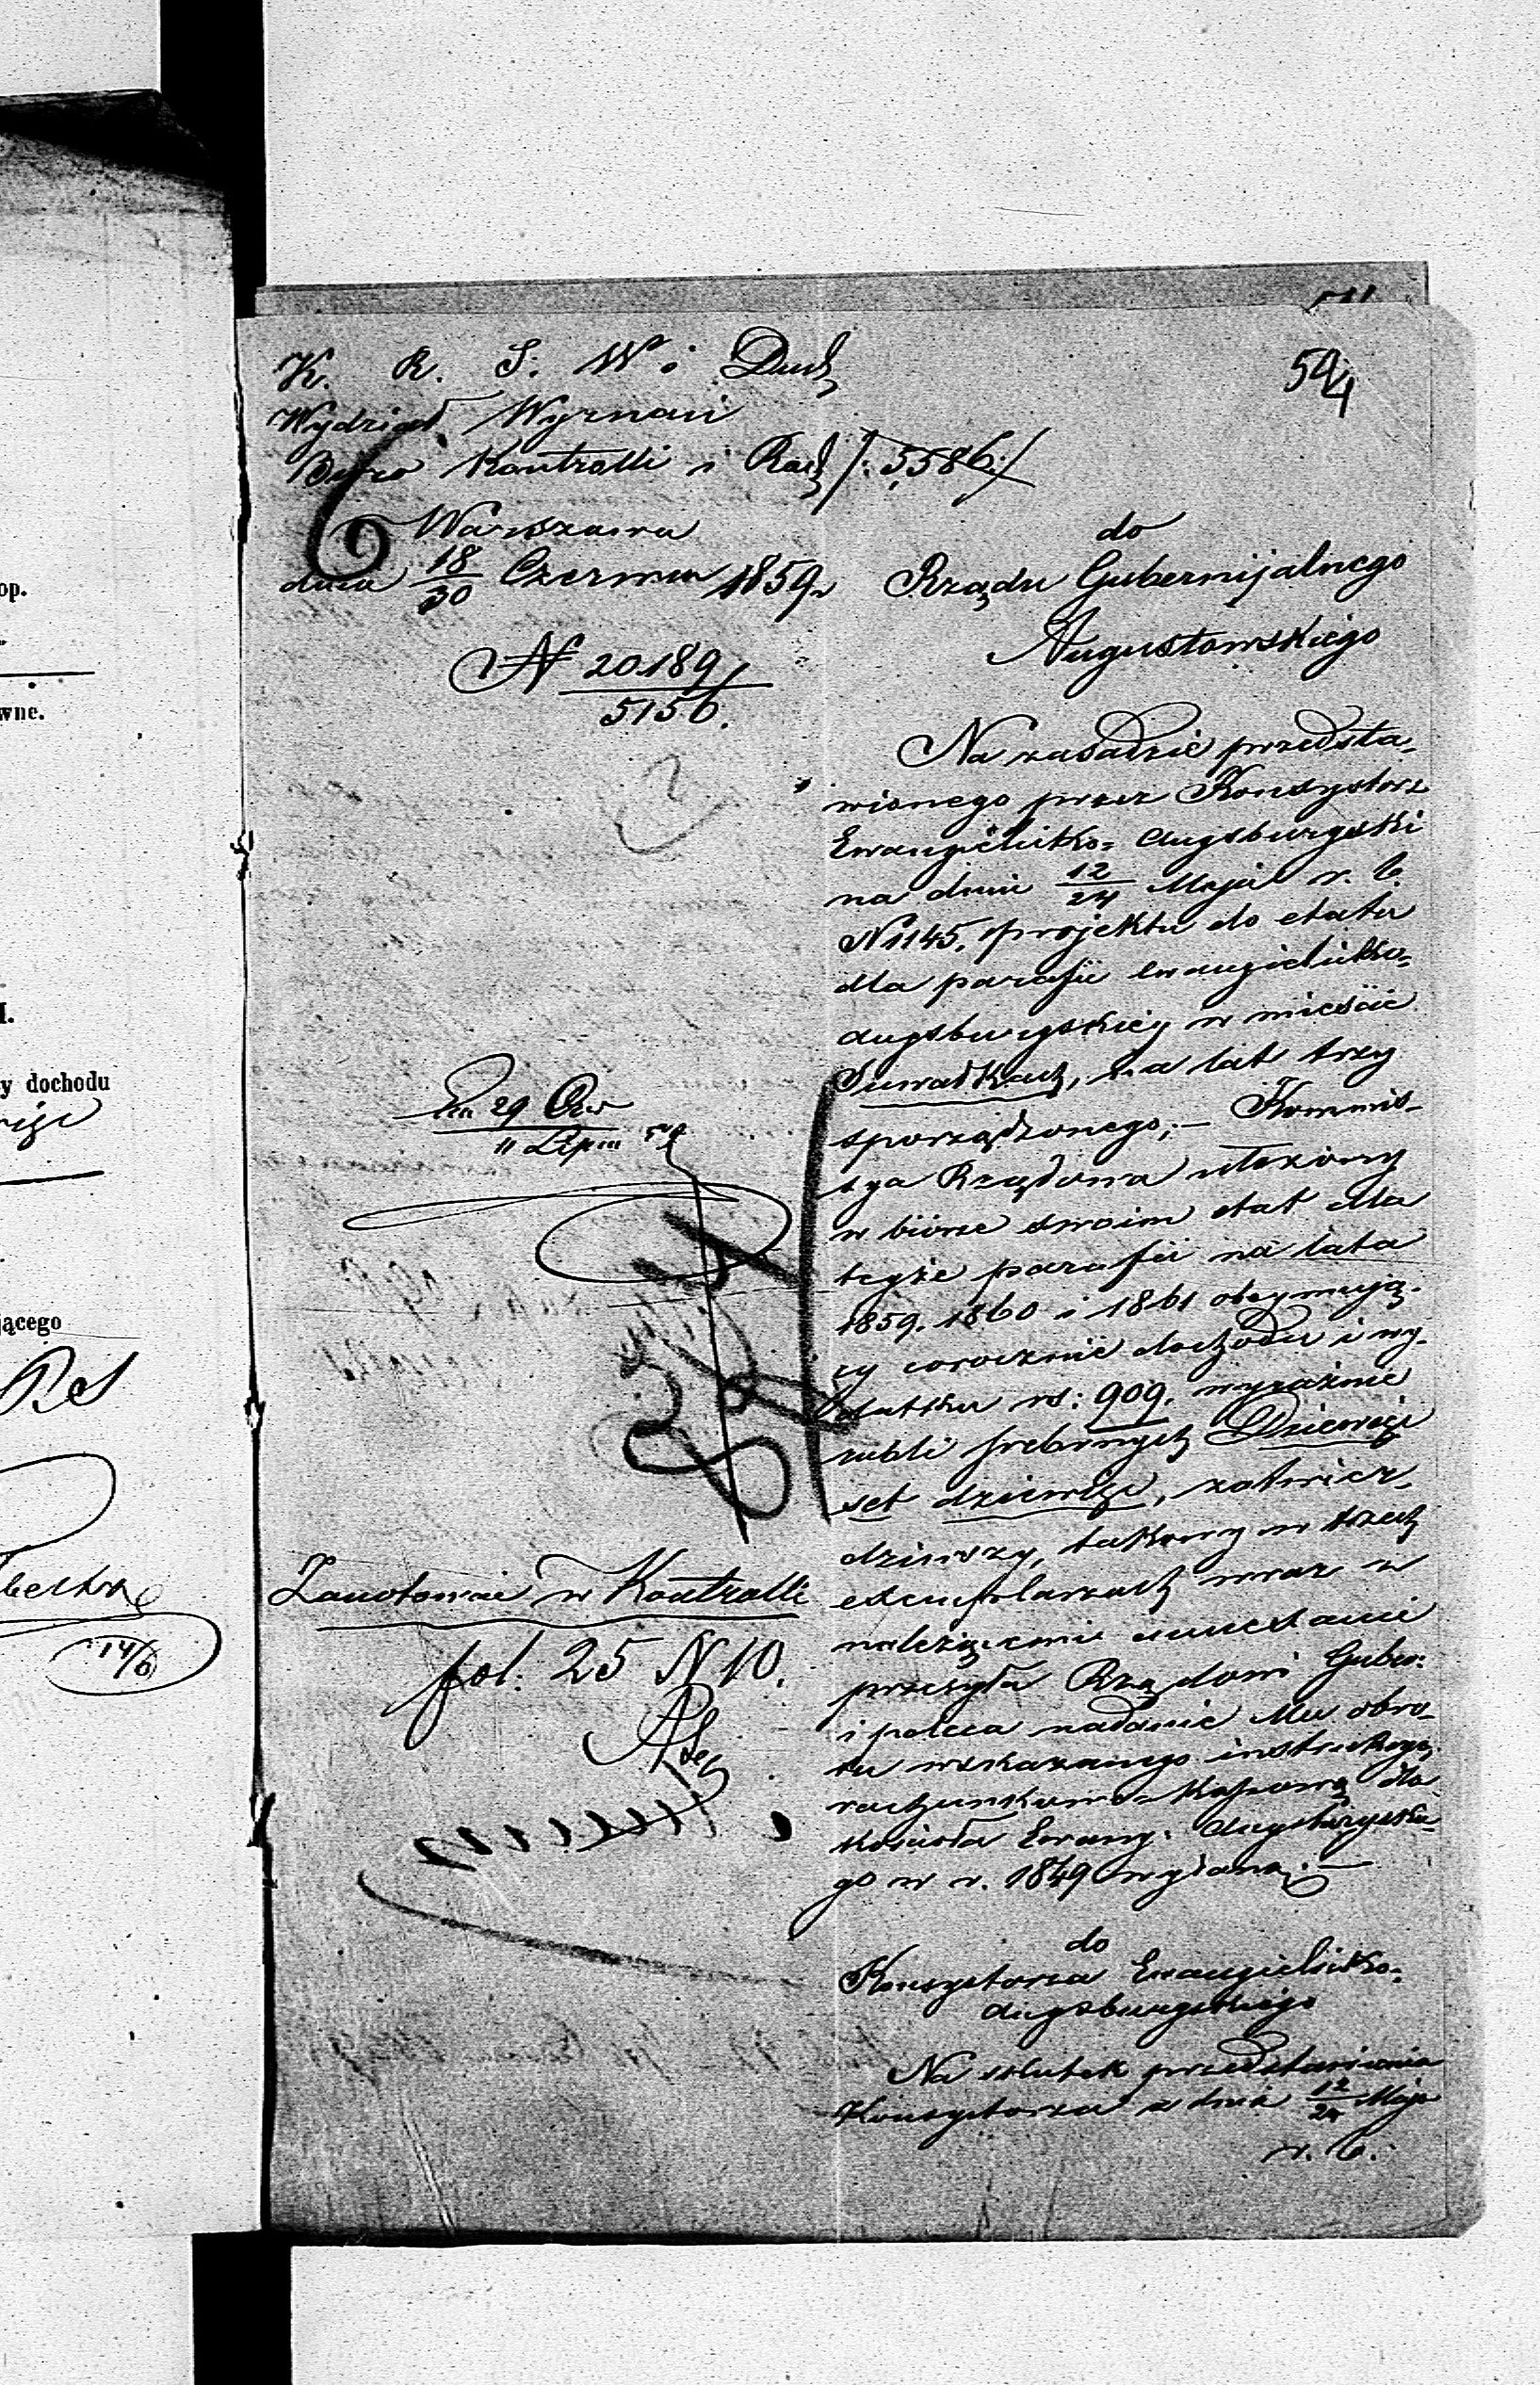 op.
wne.
I.
y dochodu
jącego
Rs
14/6
54
K. R. S. W i Duch
Wydział Wyznań
Biuro Kontrolli i Rach /: 5586:/
Warszawa
dnia 18/30 Czerwca 1859 r
N 20189/5156.
29 Cze
11 Lipca 59
Zanotowane w Kontrolli
fol: 25 N 10.
do
Rządu Gubernijalnego
Augustowskiego
Na zasadzie przedsta-
wionego przez Konsystorz
Ewangelicko= Augsburgski
na dniu 12/24 Maja r. b.
N 1145. projektu do etatu
dla parafii ewangelicko-
augsburgskiej w mieście
Suwałkach, na lat trzy
sporządzonego;– Kommis-
sya Rządowa ułożony
w biórze swoim etat dla
tejże parafii na lata
1859. 1860 i 1861 obejmują-
cy corocznie dochodu i wy-
datku rs: 909. wyraźnie
rubli srebrnych Dziewięć
set dziewięć, zatwier-
dziwszy, takowy w trzech
exemplarzach wraz z
należącemi annexami
przesyła Rządowi Guber:
i poleca nadanie Mu obro-
tu wskazanego instrukcyą
rachunkowo-kassową dla
kościoła Ewang: Augsburgskie-
go w r. 1849 wydaną.–
do
Konsystorza Ewangelicko-
augsburgskiego
Na skutek przedstawienia
Konsystorza z dnia 12/24 Maja
r. b.